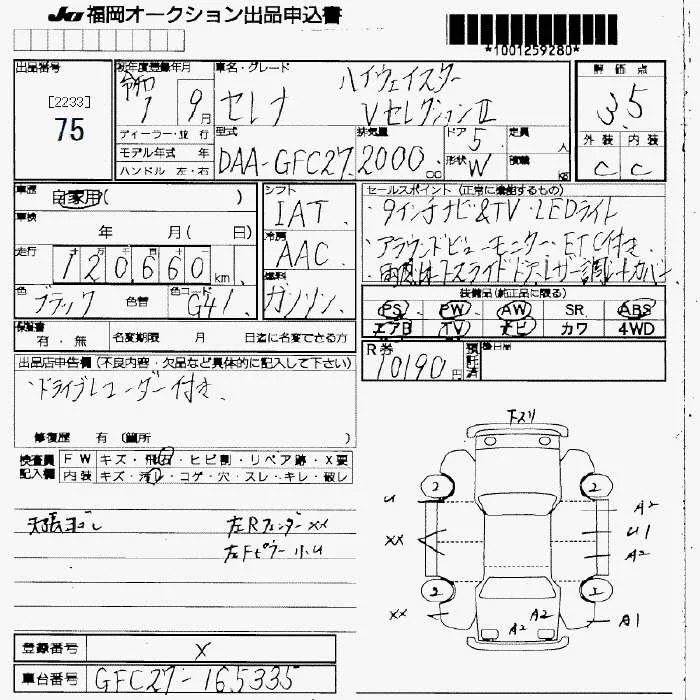 JU 福岡オークション出品申込書
*1001259280*
出品番号
[2233]
75
初年度登録年月
令和
1 9月
ディーラー・並 行
モデル年式 年
ハンドル 左・右
車名・グレード
セレナ
ハイウェイスター
VセレクションⅡ
型式
DAA-GFC27
排気量
2000 cc
ドア
5
形状
W
定員
人
積載
kg
評価点
3.5
外装 内装
C C
車歴
自家用( )
車検
年 月( 日)
走行
十 万 千 百 十
120660 km
色
ブラック
色替
色コード
G41
シフト
IAT
冷房
AAC
燃料
ガソリン
セールスポイント (正常に機能するもの)
・9インチナビ&TV・LEDライト
・アラウンドビューモニター・ETC付き
装備品(純正品に限る)
PS PW AW SR ABS
エアB TV ナビ カワ 4WD
保証書
有・無
名変期限 月 日迄に名変できる方
R券
10190円
預託済
出品店申告欄(不良内容・欠品など具体的に記入して下さい)
・ドライブレコーダー付き
修復歴 有(箇所 )
検査員記入欄
FW キズ・飛石・ヒビ割・リペア跡・X要
内装 キズ・汚レ・コゲ・穴・スレ・キレ・破レ
天張ヨゴレ
左Rフェンダー XX
左Fピラー 小U
下スリ
2 2
U
A2
XX
U1
A2
2
XX
A2 A2
A1
登録番号
X
車台番号
GFC27-165335